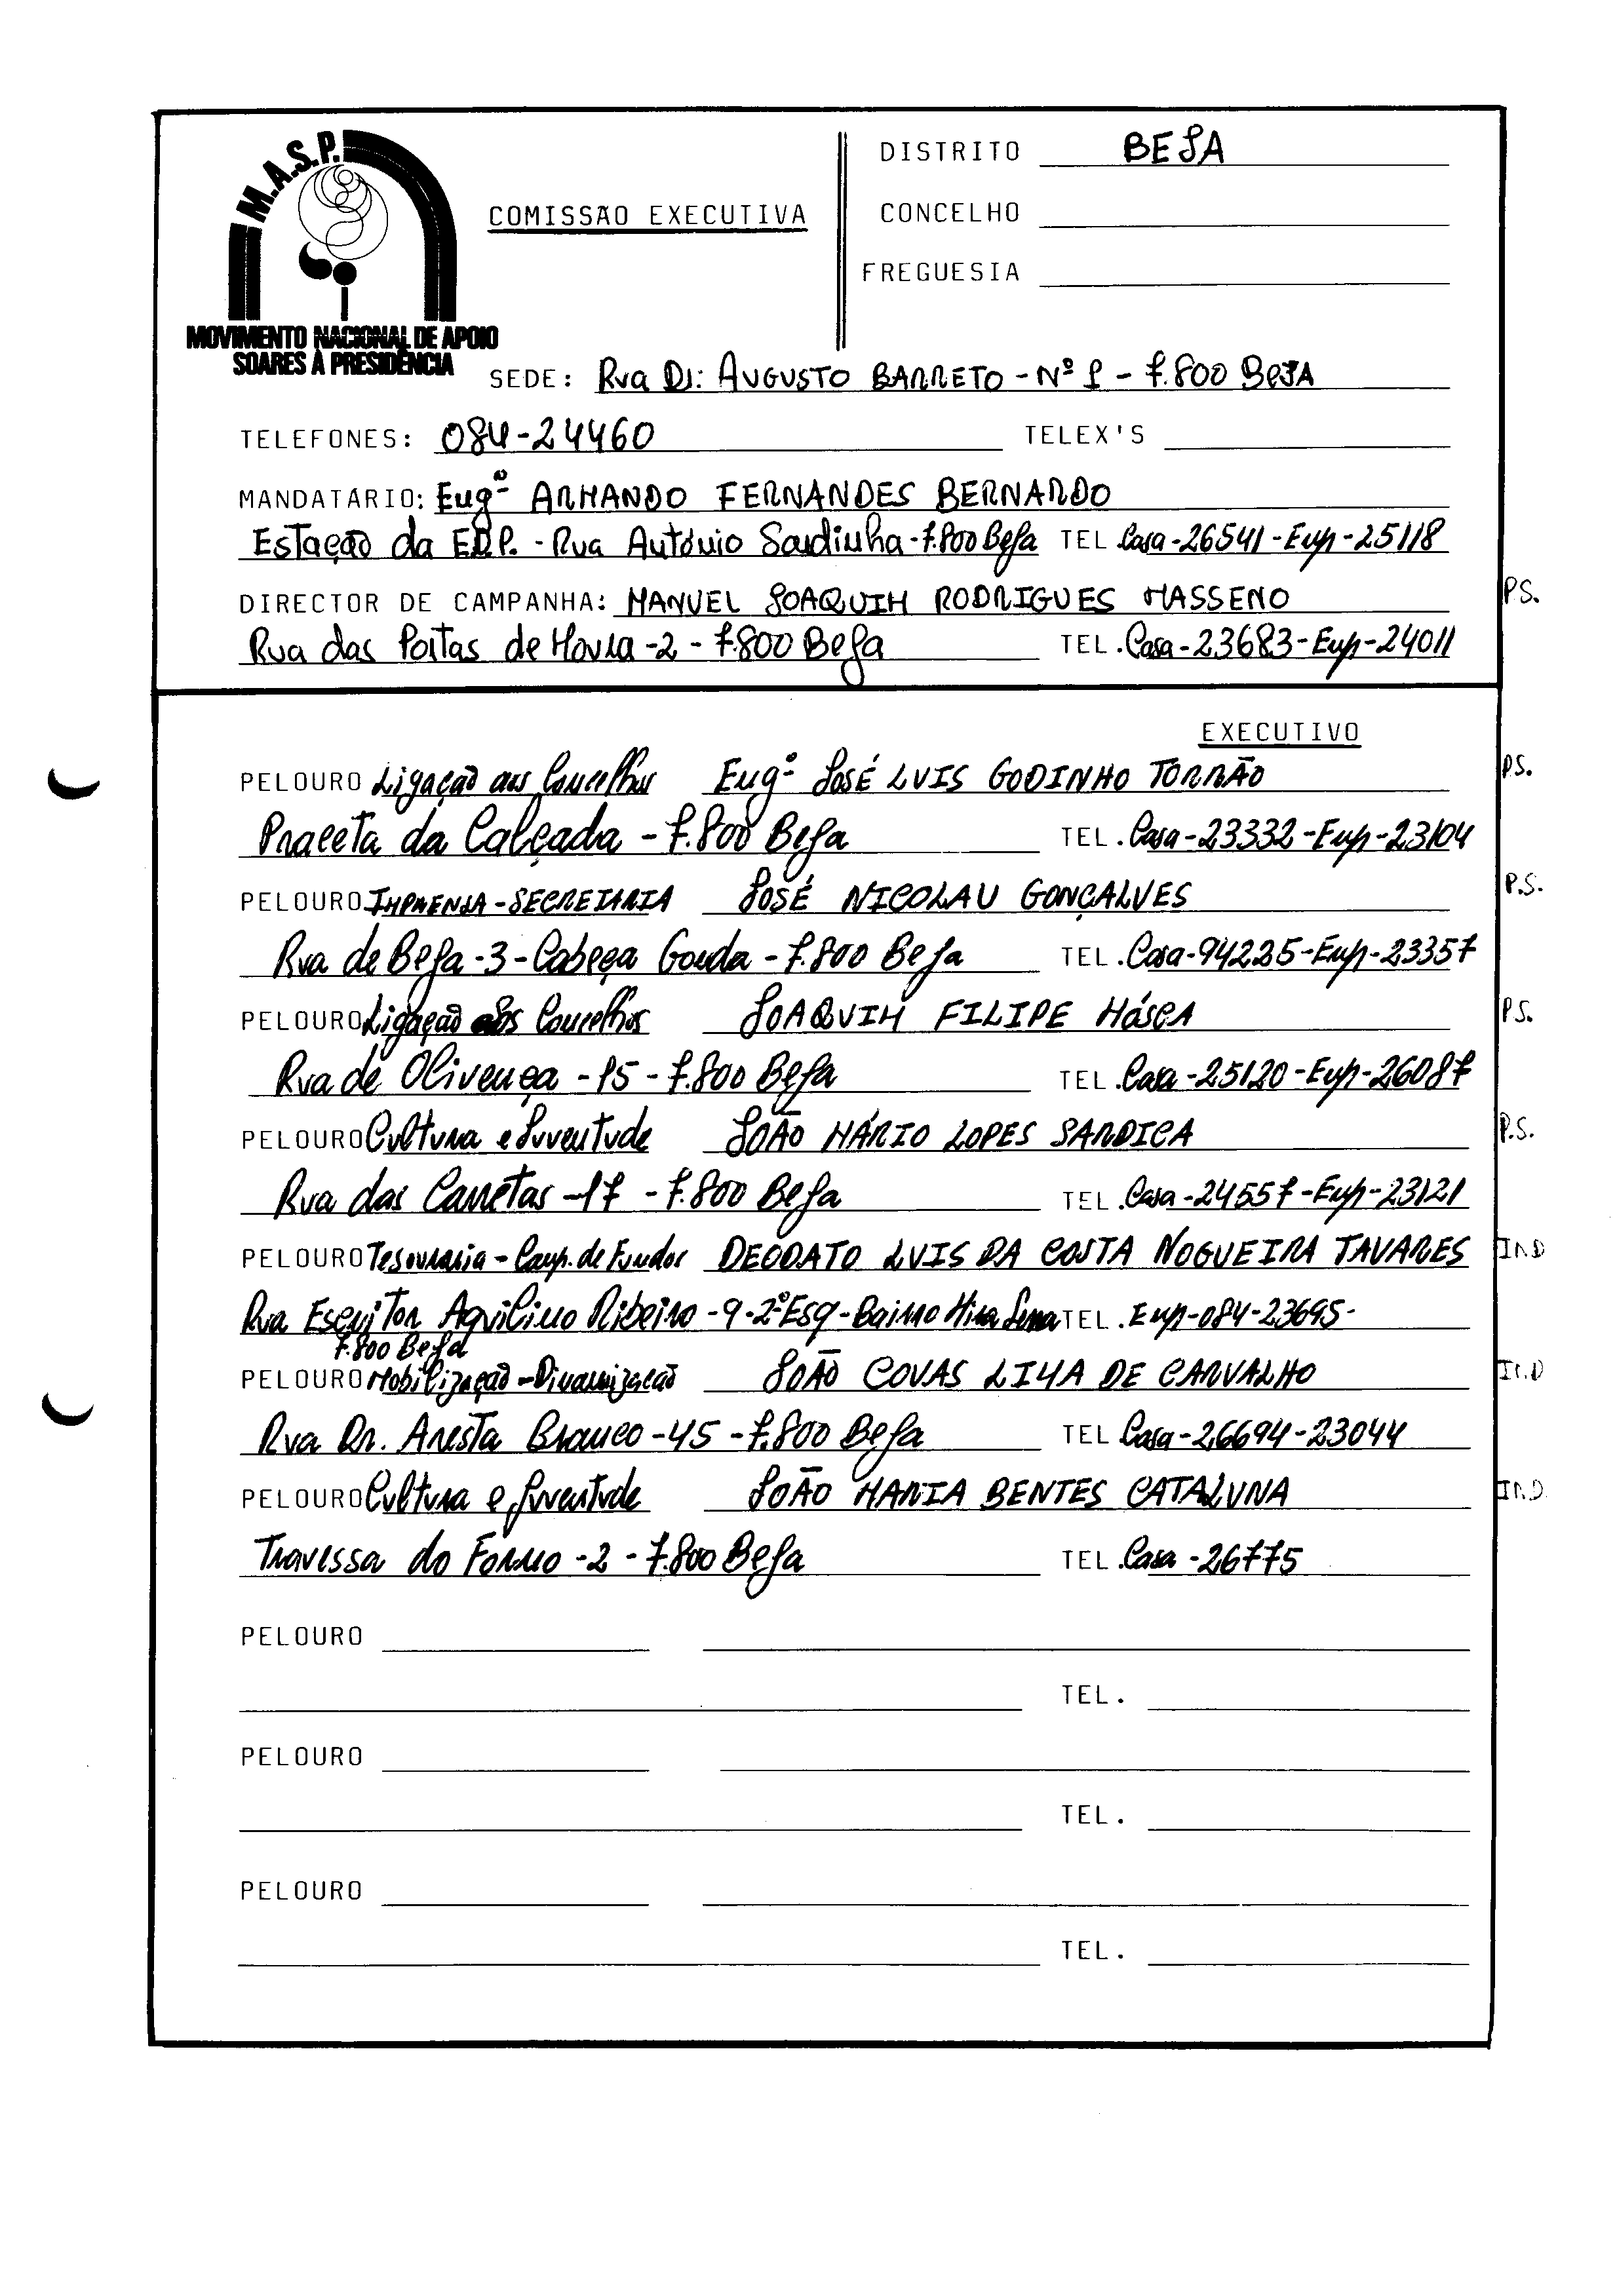 M.A.S.P.
MOVIMENTO NACIONAL DE APOIO
SOARES À PRESIDÊNCIA
COMISSÃO EXECUTIVA
DISTRITO BEJA
CONCELHO
FREGUESIA
SEDE: Rua Dr: AUGUSTO BARRETO - Nº 1 - 7.800 BeJA
TELEFONES: 084-24460 TELEX'S
MANDATÁRIO: Engº ARMANDO FERNANDES BERNARDO
Estação da EDP. - Rua António Sardinha - 7.800 Beja TEL Casa-26541-Emp-25118
DIRECTOR DE CAMPANHA: MANUEL JOAQUIM RODRIGUES MASSENO P.S.
Rua das Portas de Moura -2 - 7.800 Beja TEL. Casa-23683-Emp-24011
EXECUTIVO
PELOURO Ligação aos Concelhos Engº JOSÉ LUIS GODINHO TORRÃO P.S.
Praceta da Calçada - 7.800 Beja TEL. Casa-23332-Emp-23104
PELOURO IMPRENSA - SECRETARIA JOSÉ NICOLAU GONÇALVES P.S.
Rua de Beja -3- Cabeça Gorda - 7.800 Beja TEL. Casa-94225-Emp-23357
PELOURO Ligação aos Concelhos JOAQUIM FILIPE MÓSCA P.S.
Rua de Olivença -15 - 7.800 Beja TEL. Casa-25120-Emp-26087
PELOURO Cultura e Juventude JOÃO MÁRIO LOPES SARDICA P.S.
Rua das Carretas -17 - 7.800 Beja TEL. Casa-24557-Emp-23121
PELOURO Tesouraria - Camp. de Fundos DEODATO LUIS DA COSTA NOGUEIRA TAVARES IND
Rua Escritor Aquilino Ribeiro -9-2ºEsq - Bairro Mira Serra TEL. Emp-084-23695-
7.800 Beja
PELOURO Mobilização - Dinamização JOÃO COVAS LIMA DE CARVALHO IND
Rua Dr. Aresta Branco -45 - 7.800 Beja TEL Casa-26694-23044
PELOURO Cultura e Juventude JOÃO MARIA BENTES CATALUNA IND.
Travessa do Forno -2 - 7.800 Beja TEL. Casa -26775
PELOURO
TEL.
PELOURO
TEL.
PELOURO
TEL.